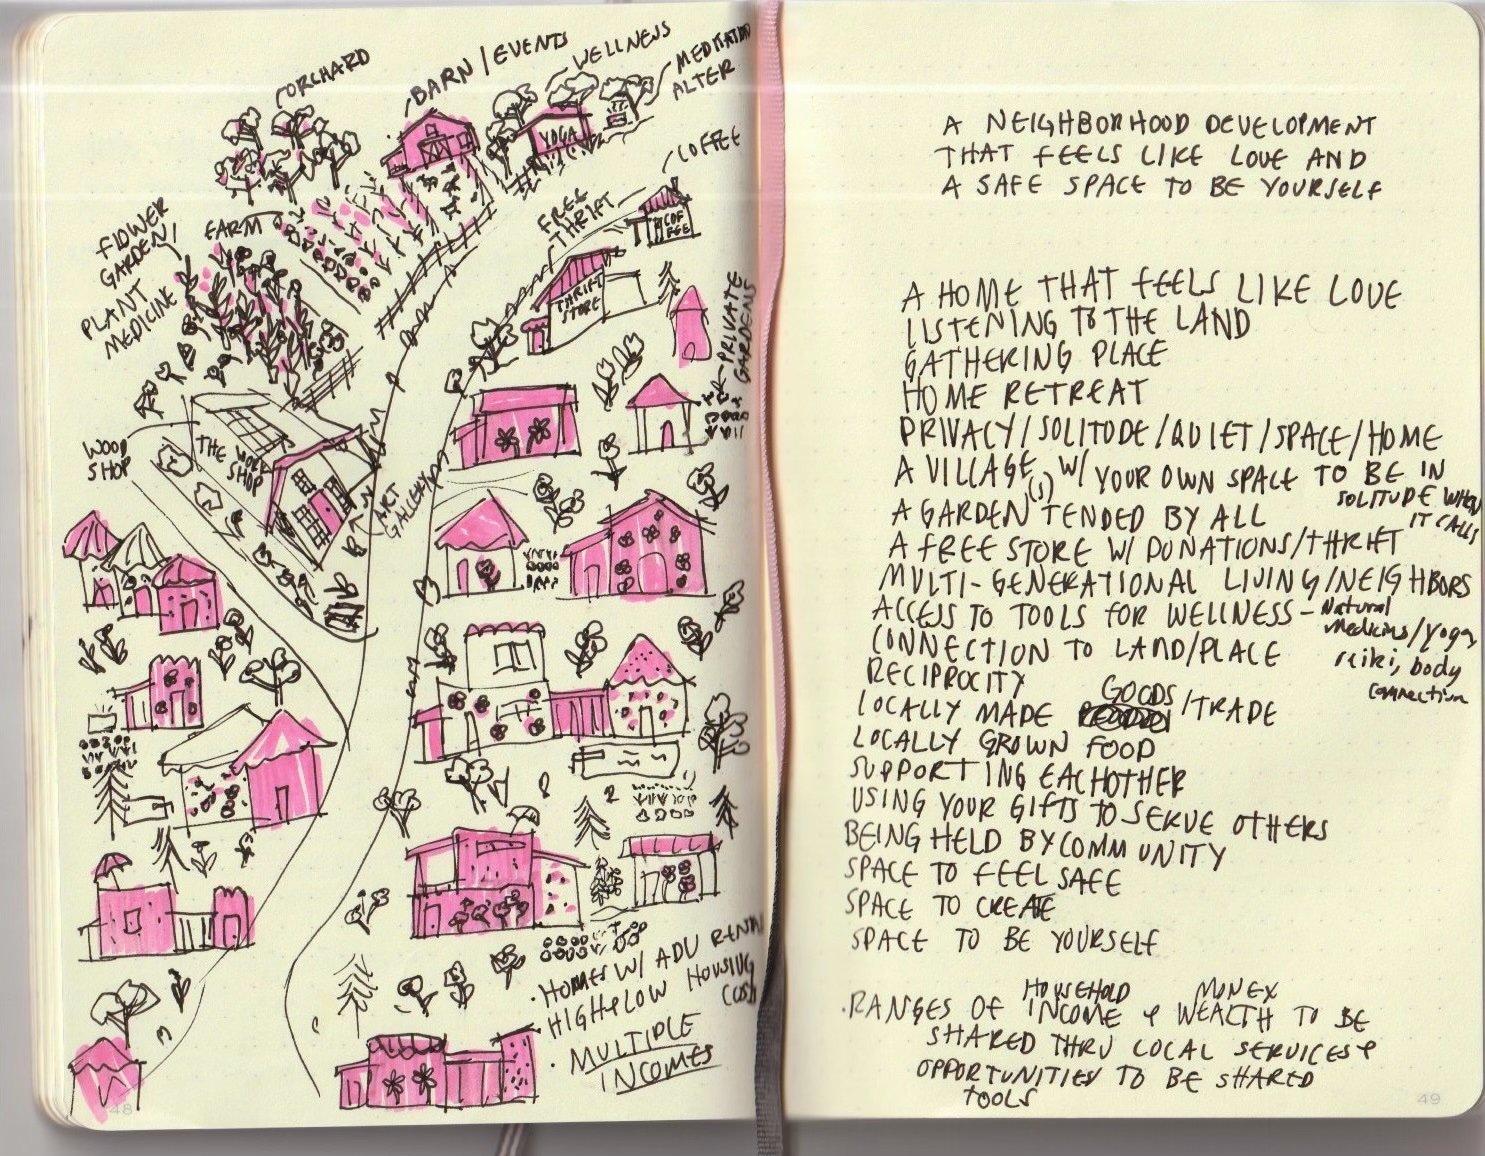 ORCHARD
BARN/EVENTS
WELLNESS
MEDITATION
ALTER
YOGA
COFFEE
FREE
THRIFT
COF
FEE
FLOWER
GARDEN/
PLANT
MEDICINE
FARM
THRIFT
STORE
PRIVATE
GARDENS
WOOD
SHOP
THE WORK
SHOP
ART
GALLERY
· HOMES W/ ADU RENTAL
HIGH & LOW HOUSING
COST
· MULTIPLE
INCOMES
48
A NEIGHBORHOOD DEVELOPMENT
THAT FEELS LIKE LOVE AND
A SAFE SPACE TO BE YOURSELF
A HOME THAT FEELS LIKE LOVE
LISTENING TO THE LAND
GATHERING PLACE
HOME RETREAT
PRIVACY/SOLITUDE/QUIET/SPACE/HOME
A VILLAGE W/ YOUR OWN SPACE TO BE IN
SOLITUDE WHEN
IT CALLS
A GARDEN(S) TENDED BY ALL
A FREE STORE W/ DONATIONS/THRIFT
MULTI-GENERATIONAL LIVING/NEIGHBORS
ACCESS TO TOOLS FOR WELLNESS – Natural
Medicins/Yoga,
reiki, body
connection
CONNECTION TO LAND/PLACE
RECIPROCITY
LOCALLY MADE GOODS/TRADE
LOCALLY GROWN FOOD
SUPPORTING EACHOTHER
USING YOUR GIFTS TO SERVE OTHERS
BEING HELD BY COMMUNITY
SPACE TO FEEL SAFE
SPACE TO CREATE
SPACE TO BE YOURSELF
· RANGES OF HOUSEHOLD INCOME & MONEY WEALTH TO BE
SHARED THRU LOCAL SERVICES &
OPPORTUNITIES TO BE SHARED
TOOLS
49